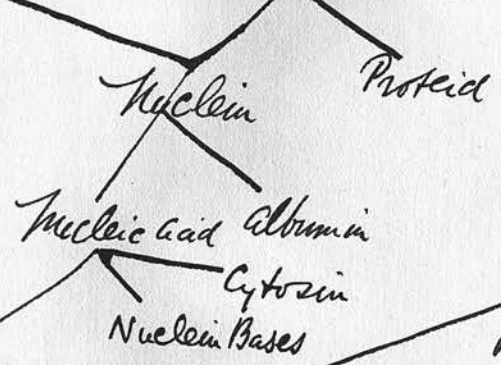 Proteid
Nuclein
Nucleic acid albumin
Cytosin
Nuclein Bases